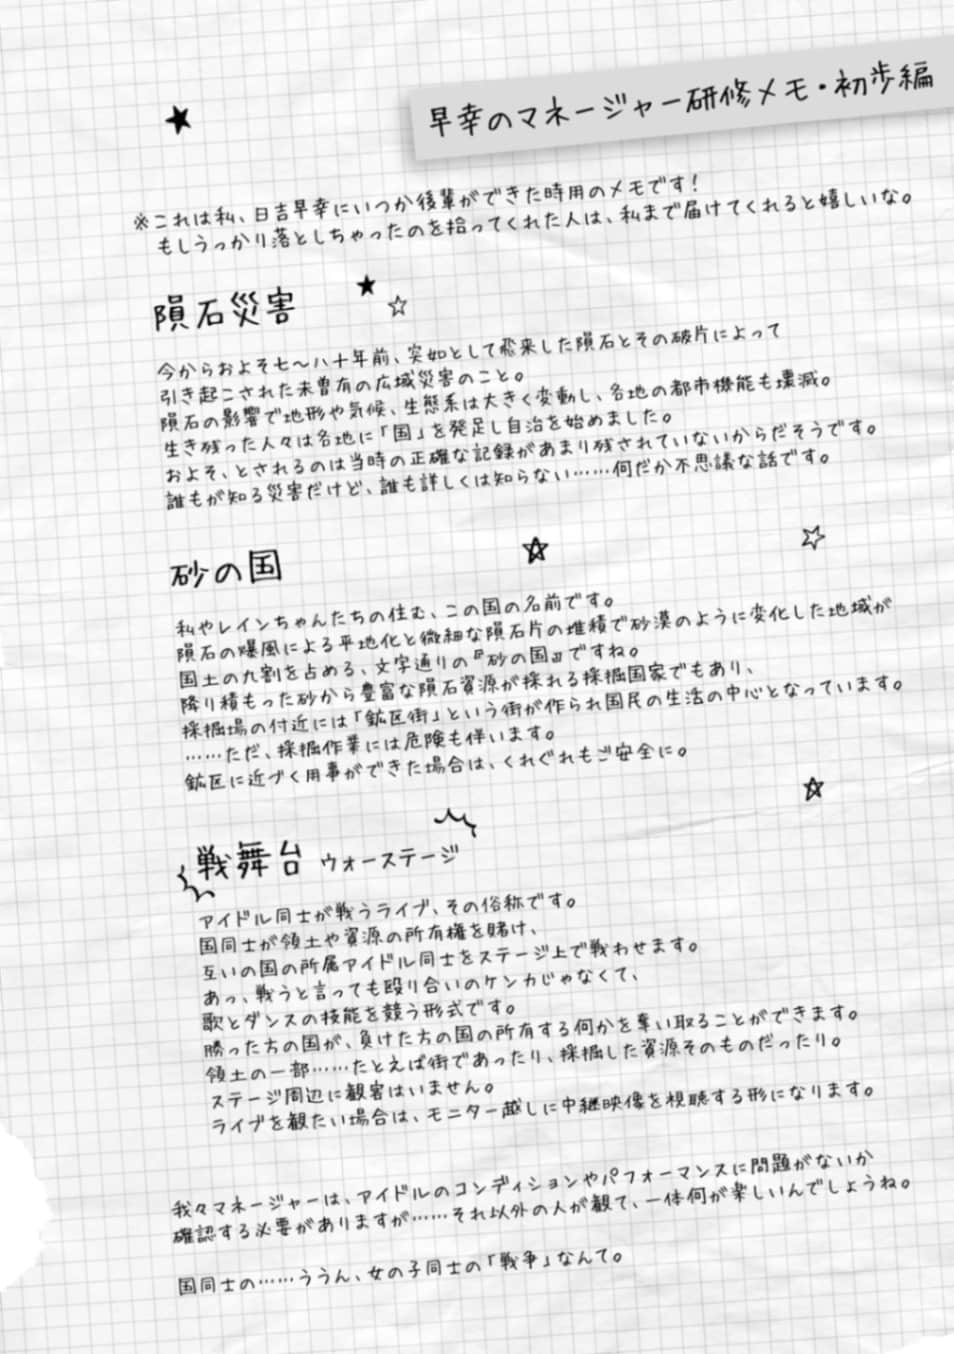 早幸のマネージャー研修メモ・初歩編
※これは私、日吉早幸にいつか後輩ができた時用のメモです！
もしうっかり落としちゃったのを拾ってくれた人は、私まで届けてくれると嬉しいな。
隕石災害
今からおよそ七～八十年前、突如として飛来した隕石とその破片によって
引き起こされた未曽有の広域災害のこと。
隕石の影響で地形や気候、生態系は大きく変動し、各地の都市機能も壊滅。
生き残った人々は各地に「国」を発足し自治を始めました。
およそ、とされるのは当時の正確な記録があまり残されていないからだそうです。
誰もが知る災害だけど、誰も詳しくは知らない……何だか不思議な話です。
砂の国
私やレインちゃんたちの住む、この国の名前です。
隕石の爆風による平地化と微細な隕石片の堆積で砂漠のように変化した地域が
国土の九割を占める、文字通りの『砂の国』ですね。
降り積もった砂から豊富な隕石資源が採れる採掘国家でもあり、
採掘場の付近には「鉱区街」という街が作られ国民の生活の中心となっています。
……ただ、採掘作業には危険も伴います。
鉱区に近づく用事ができた場合は、くれぐれもご安全に。
戦舞台 ウォーステージ
アイドル同士が戦うライブ、その俗称です。
国同士が領土や資源の所有権を賭け、
互いの国の所属アイドル同士をステージ上で戦わせます。
あっ、戦うと言っても殴り合いのケンカじゃなくて、
歌とダンスの技能を競う形式です。
勝った方の国が、負けた方の国の所有する何かを奪い取ることができます。
領土の一部……たとえば街であったり、採掘した資源そのものだったり。
ステージ周辺に観客はいません。
ライブを観たい場合は、モニター越しに中継映像を視聴する形になります。
我々マネージャーは、アイドルのコンディションやパフォーマンスに問題がないか
確認する必要がありますが……それ以外の人が観て、一体何が楽しいんでしょうね。
国同士の……ううん、女の子同士の「戦争」なんて。